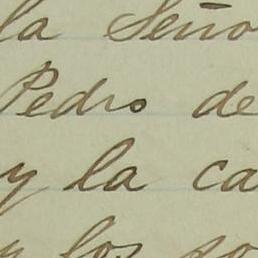 la Seño
Pedro de
y la ca
y los so